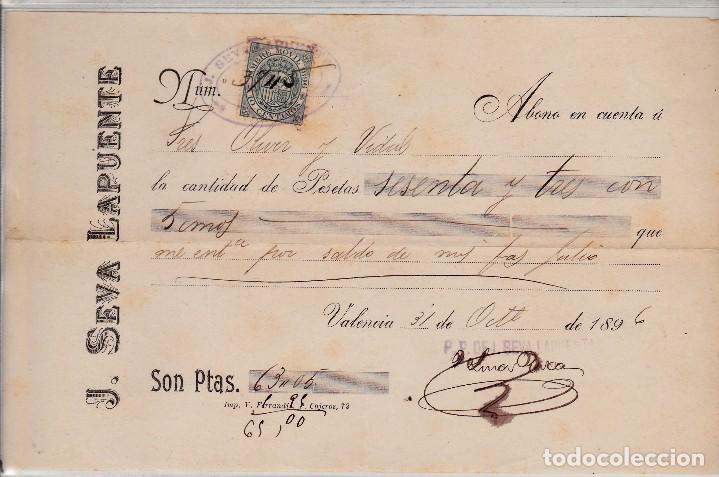 J. SEVA LAPUENTE
Núm. 3743
Abono en cuenta á
Sres Oliver y Vidal
la cantidad de Pesetas sesenta y tres con
5 cmos que
me ent por saldo de mis fas Julio
Valencia 31 de Octe de 1896
P. P. DE J. SEVA LAPUENTE
Son Ptas. 63,05
Imp. V. Ferrandis, P. Cajeros, 73
1,95
65,00
todocoleccion.net